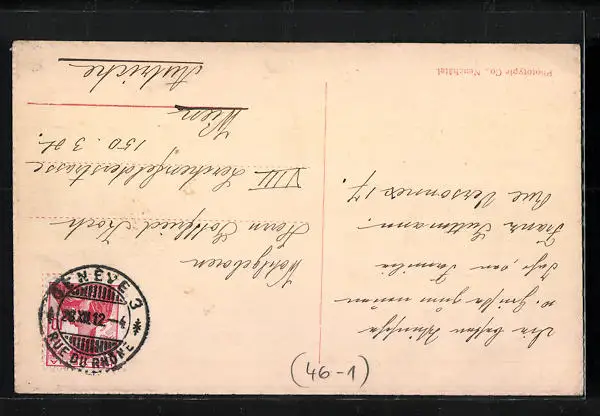 Phototypie Co., Neuchâtel
Die besten Wünsche
u. Grüße zum neuen
Jahr, an Familie
Franz
Rue Versonnex 17.
Wohlgeboren
Herrn Gottfried Koch
VIII Lerchenfelderstrasse
150. 3. St.
Wien
Autriche
GENÈVE 3
26.XII.12-4
RUE DU RHÔNE
(46-1)